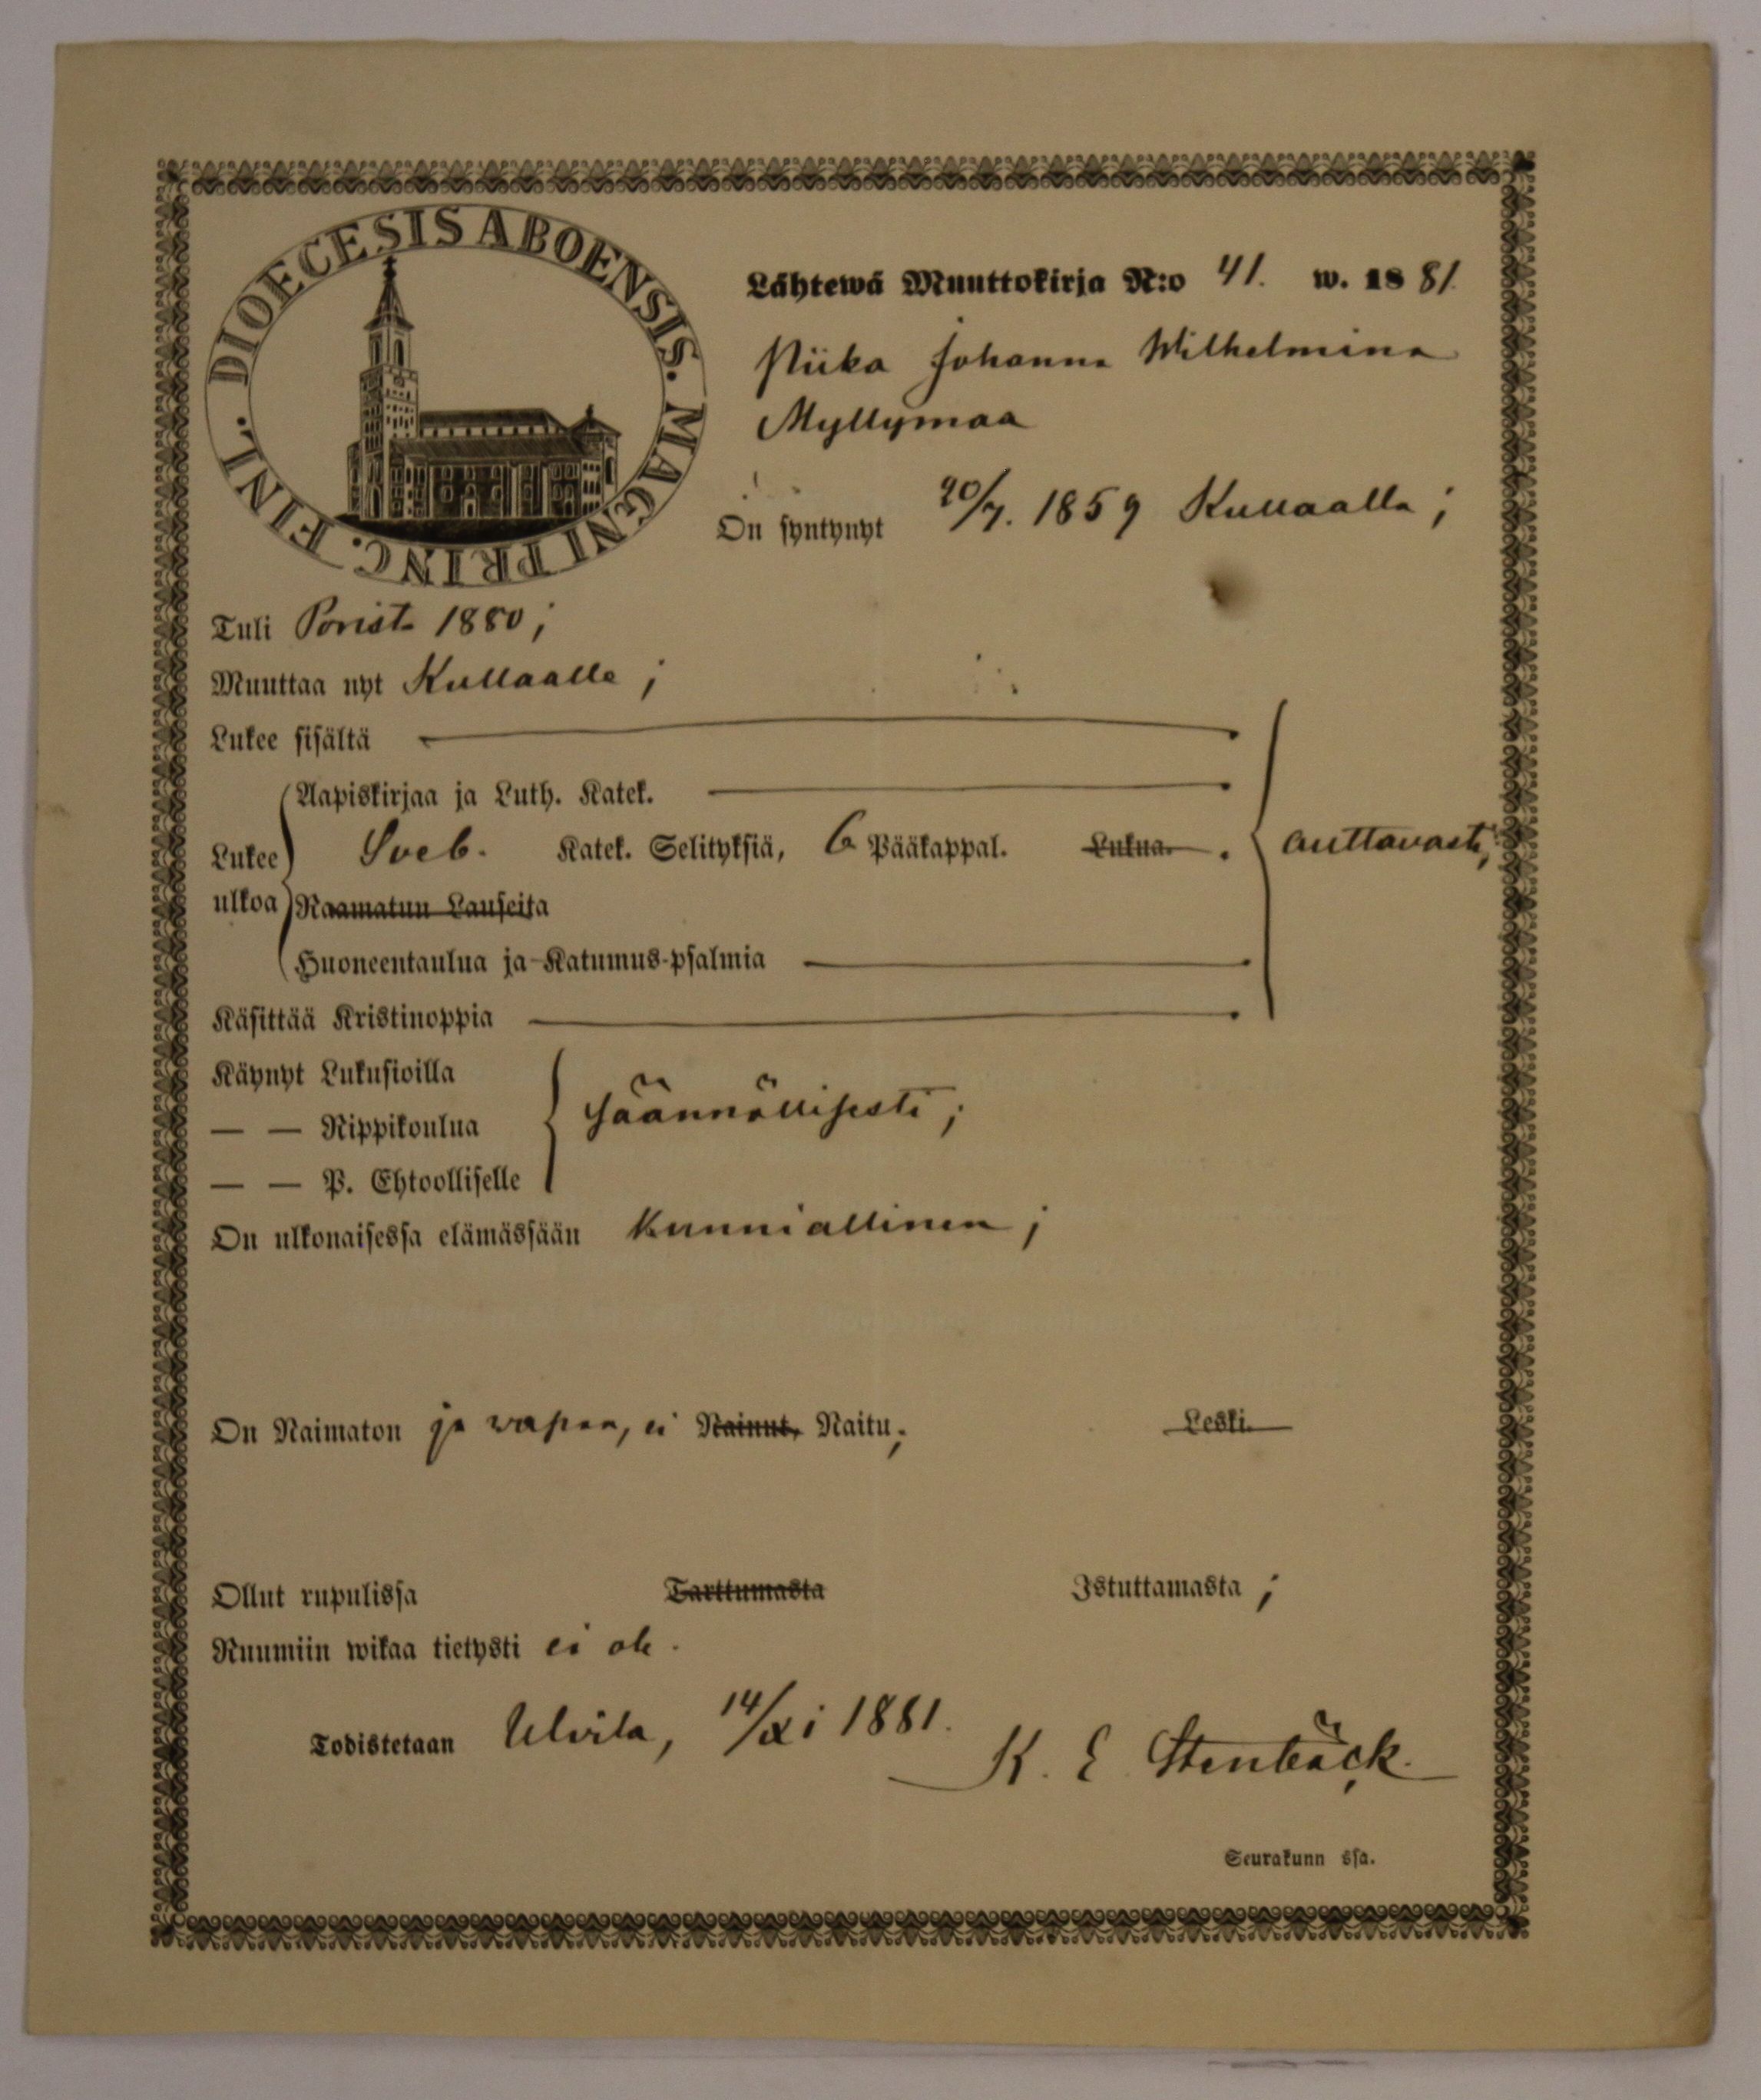 DIOECESIS ABOENSIS. MAGNI PRINC. FINL.
Lähtewä Muuttokirja N:o 41. w. 1881.
Piika Johanna Wilhelmina
Myllymaa
On syntynyt 20/7. 1859 Kullaalla;
Tuli Porist. 1880;
Muuttaa nyt Kullaalle;
Lukee sisältä
Aapiskirjaa ja Luth. Katek.
Lukee Sveb. Katek. Selityksiä, 6 Pääkappal. Lukua. . auttavasti,
ulkoa Raamatun Lauseita
Huoneentaulua ja Katumus-psalmia
Käsittää Kristinoppia
Käynyt Lukusioilla
— — Rippikoulua säännöllisesti;
— — P. Ehtoolliselle
On ulkonaisessa elämässään kunniallinen;
On Naimaton ja vapaa, ei Nainut, Naitu; Leski.
Ollut rupulissa Tarttumasta Istuttamasta;
Ruumiin wikaa tietysti ei ole.
Todistetaan Ulvila, 14/xi 1881.
K. E. Stenbäck.
Seurakunn ssa.